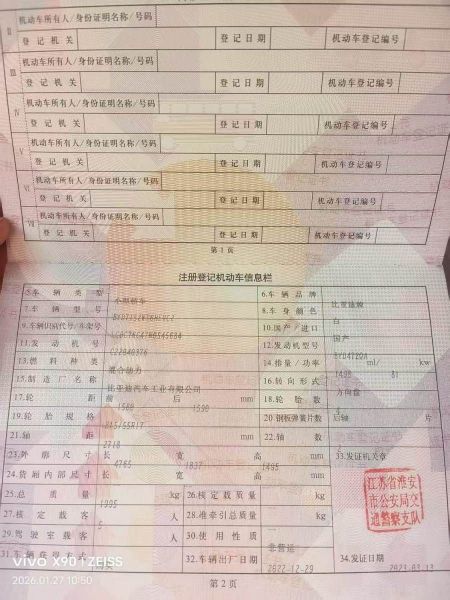 II 机动车所有人/身份证明名称/号码
登记机关 登记日期 机动车登记编号
III 机动车所有人/身份证明名称/号码
登记机关 登记日期 机动车登记编号
机动车所有人/身份证明名称/号码
登记机关 登记日期 机动车登记编号
V 机动车所有人/身份证明名称/号码
登记机关 登记日期 机动车登记编号
VI 机动车所有人/身份证明名称/号码
登记机关 登记日期 机动车登记编号
VII 机动车所有人/身份证明名称/号码
登记机关 登记日期 机动车登记编号
第1页
注册登记机动车信息栏
5.车辆类型 小型轿车 6.车辆品牌 比亚迪牌
7.车辆型号 8.车身颜色 白
9.车辆识别代号/车架号 10.国产/进口 国产
11.发动机号 12.发动机型号 BYD472QA
13.燃料种类 混合动力 14.排量/功率 1498 ml/ 81 kw
15.制造厂名称 比亚迪汽车工业有限公司 16.转向形式 方向盘
17.轮距 前 1580 后 1590 mm 18.轮胎数 4
19.轮胎规格 215/55R17 20.钢板弹簧片数 后轴 片
21.轴距 2718 mm 22.轴数 2
23.外廓尺寸 长 4765 宽 1837 高 1495 mm 33.发证机关章
24.货厢内部尺寸 长 宽 高 mm
25.总质量 kg 26.核定载质量 kg
27.核定载客 5 人 28.准牵引总质量 kg
29.驾驶室载客 人 30.使用性质 非营运
31.车辆获得方式 32.车辆出厂日期 2022-12-29 34.发证日期
江苏省淮安
市公安局交
通警察支队
vivo X90 | ZEISS
2026.01.27 10:50
第2页